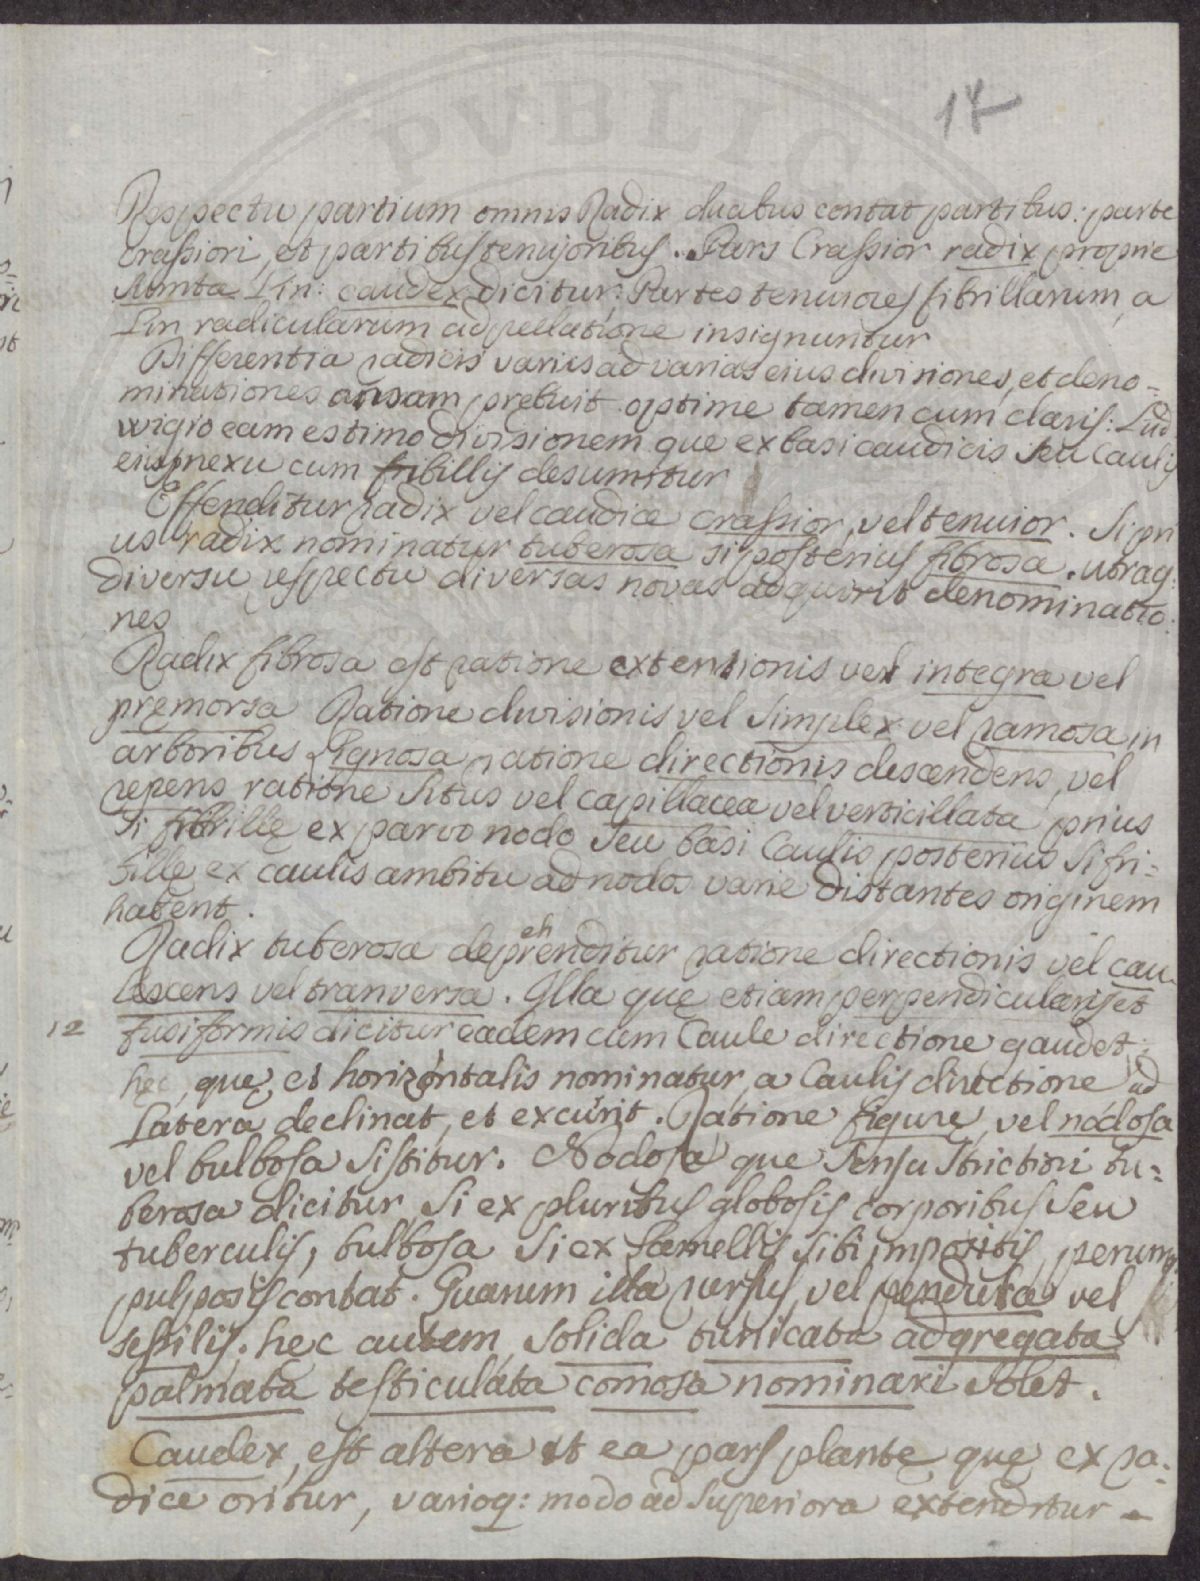 PVBLICA
14
Respectu partium omnis Radix duabus contat partibus: parte
crassiori, et partibus tenujoribus. Pars Crassior radix proprie
Lin: caudex dicitur: Partes tenuiores fibrillarum, a
Lin radicularum adpellatione insignuntur
Differentia radicis variis ad varias eius divisiones, et deno-
minationes ansam prebuit optime tamen cum claris: Lud
wigio eam estimo divisionem que ex basi caudicis seu Caulis
eiusq nexu cum fribillis desumitur
Offenditur radix vel caudice crassior, vel tenuior. Si pri
us radix nominatur tuberosa si posterius fibrosa. utraq:
diversu respectu diversas novas adquirit denominatio:
nes
Radix fibrosa est ratione extentionis vel integra vel
premorsa Ratione divisionis vel simplex vel ramosa in
arboribus Lignosa ratione directionis descendens, vel
repens ratione situs vel capillacea vel verticillata prius
si fibrille ex parvo nodo seu basi Caulis posterius si fri-
bille ex caulis ambitu ad nodos varie distantes originem
habent.
Radix tuberosa deprehenditur ratione directionis vel cau
lescens vel tranversa. Illa que etiam perpendicularis et
12 fusiformis dicitur eadem cum Caule directione gaudet;
hec, que, et horizontalis nominatur, a Caulis directione ad
Latera declinat, et excurit. Ratione figure, vel nodosa
vel bulbosa sistitur. Nodosa que sensu strictiori tu-
berosa dicitur si ex pluribus globosis corporibus seu
tuberculis, bulbosa si ex Lamellis sibi impositis, perumq
pulposis contat. Quarum illa rursus, vel pendula vel
sessilis. hec autem, solida tunicata adgregata
palmata testiculata comosa nominari solet.
Caudex, est altera et ea pars plante que ex ra-
dice oritur, varioq: modo ad superiora extenditur